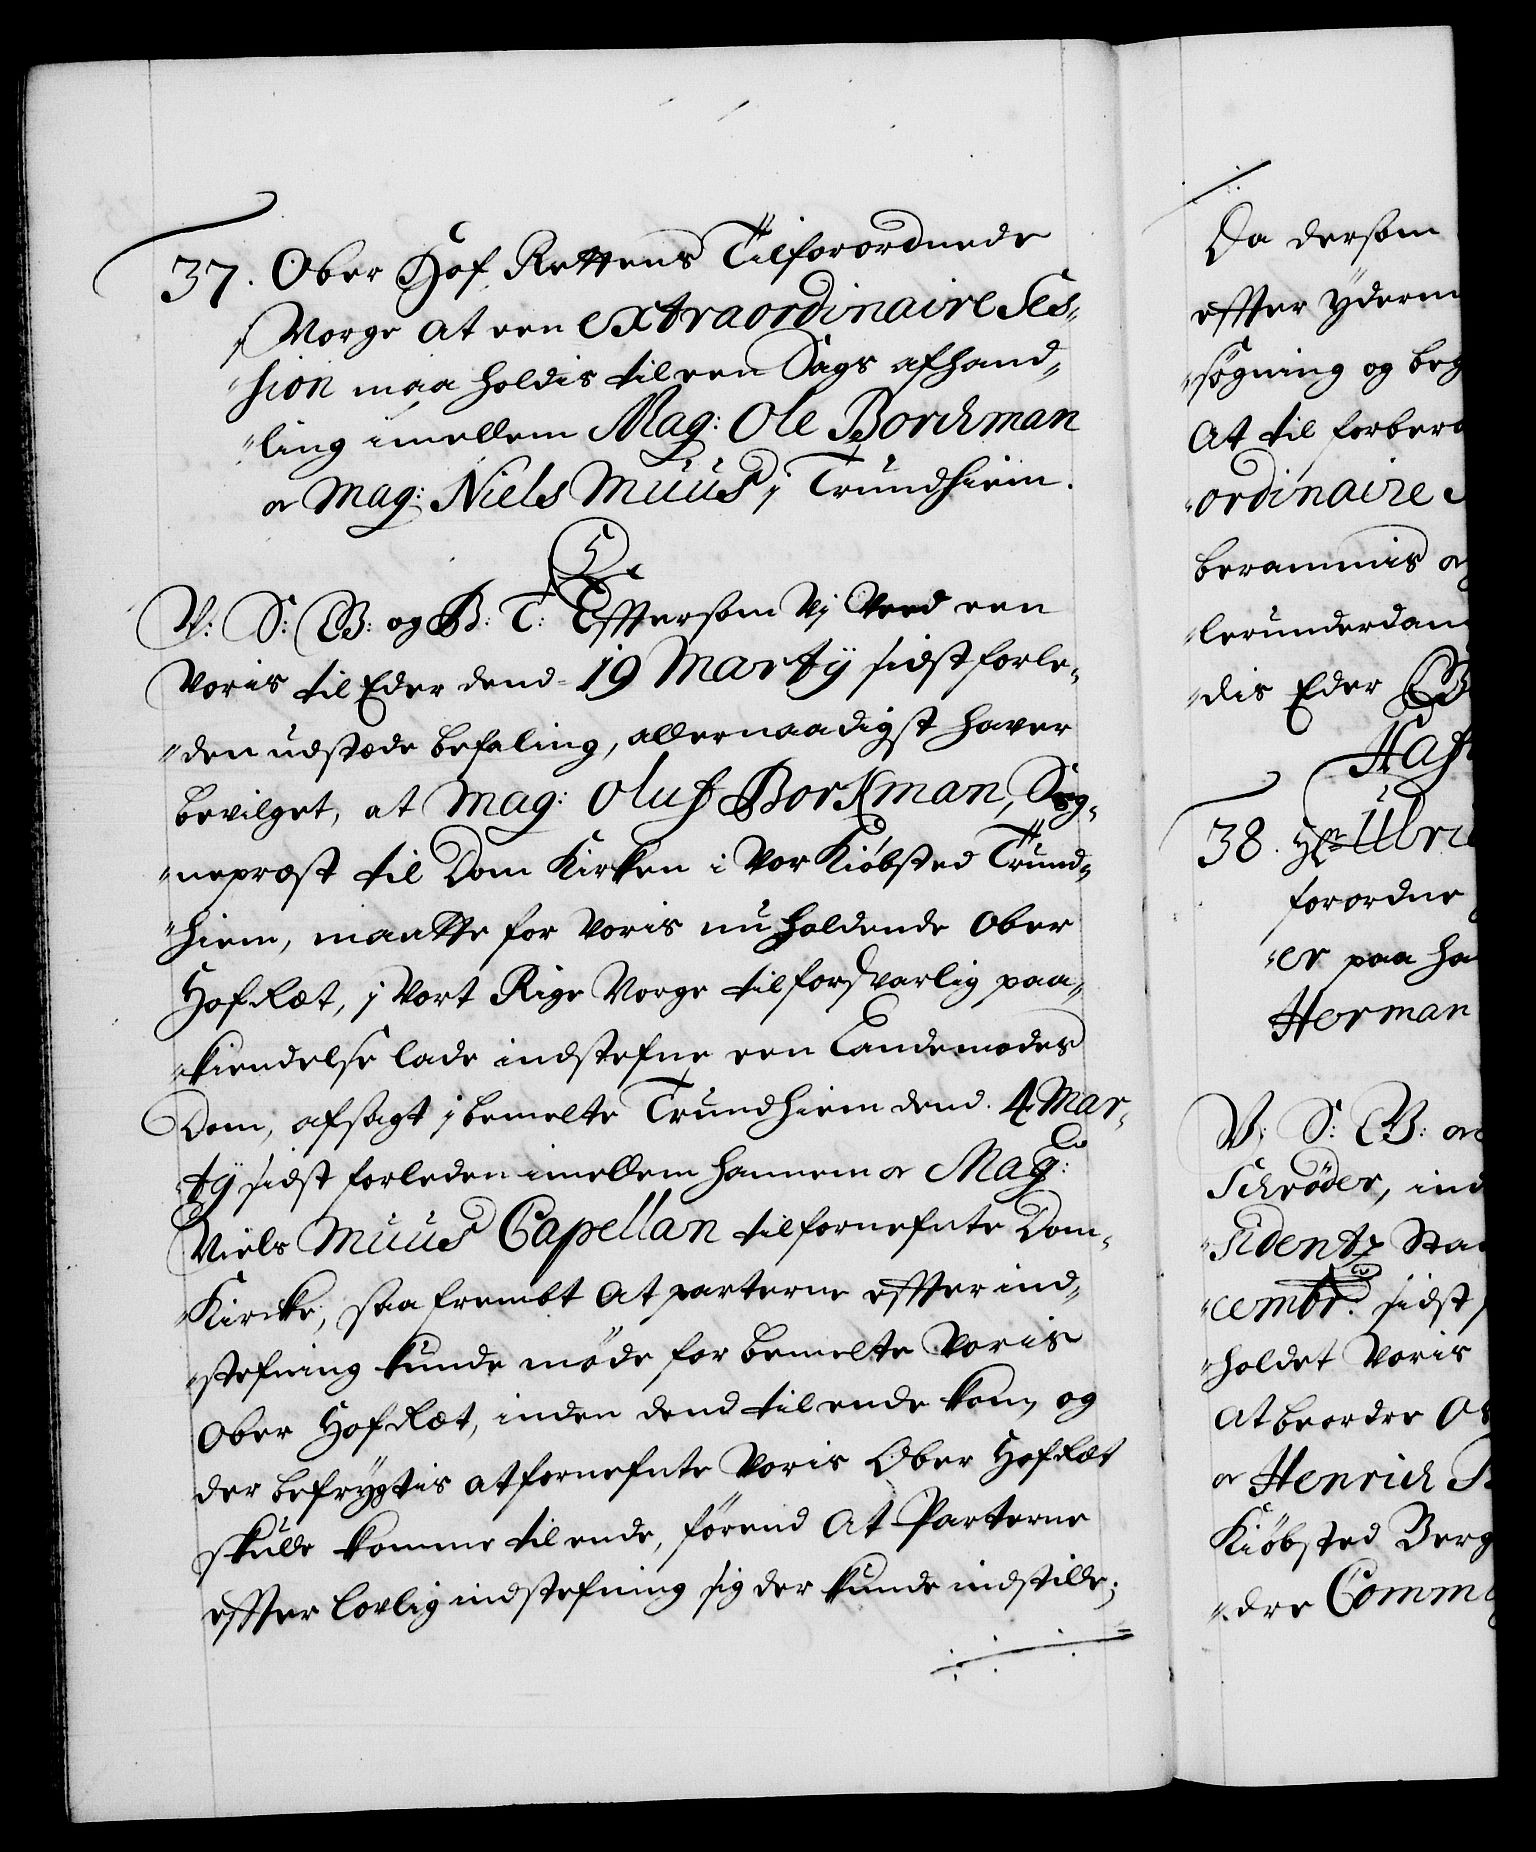 37. Ober Hof Rettens Tilforordnede
i Norge at een extraordinaire Ses-
sion maa holdis til een Sags afhand-
ling imellem Mag: Ole Borchman
or Mag: Niels Muus i Trundhiem.
V: S: G: og B: T: Effttersom Vi Veed een
Voris til Eder dend 19 Marty sidst forle-
den udstæde befaling, allernaadigst haver
bevilget, at Mag: Oluf Borkman, Sog-
nepræst til Dom Kirken i Vor Kiøbsted Trund-
hiem, maatte for Voris nu holdende Ober
Hof Ræt, i Vort Rige Norge til forsvarlig paa-
kiendelse lade indstefne een Landemodes
Dom, afsagt i bemelte Trundhiem dend. 4 Mar-
ty sidst forleden imellem hannem or Mag:
Niels Muus Capellan til fornefnte Dom-
Kircke, saafrembt at parterne effter ind-
stefning kunde møde for bemelte Voris
Ober Hof Ræt, inden dend til ende kom, og
der befrygtis at fornefnte Voris Ober Hof Ræt
skulle komme til ende, førend at Parterne
effter lovlig indstefning sig der kunde indstille;
Da dersom
effter yderm
søgning og beg
at til forbero
ordinaire
berammis
lerunderdan
dis Eder
Haf
38. Hr Ulri
forordne
er paa ha
Herman
V: S: G: or
Schrøder, ind
sidentz Sta
cembr: sidst
holdet Voris
at beordre
or Henrich
Kiøbsted Berg
dre Comm